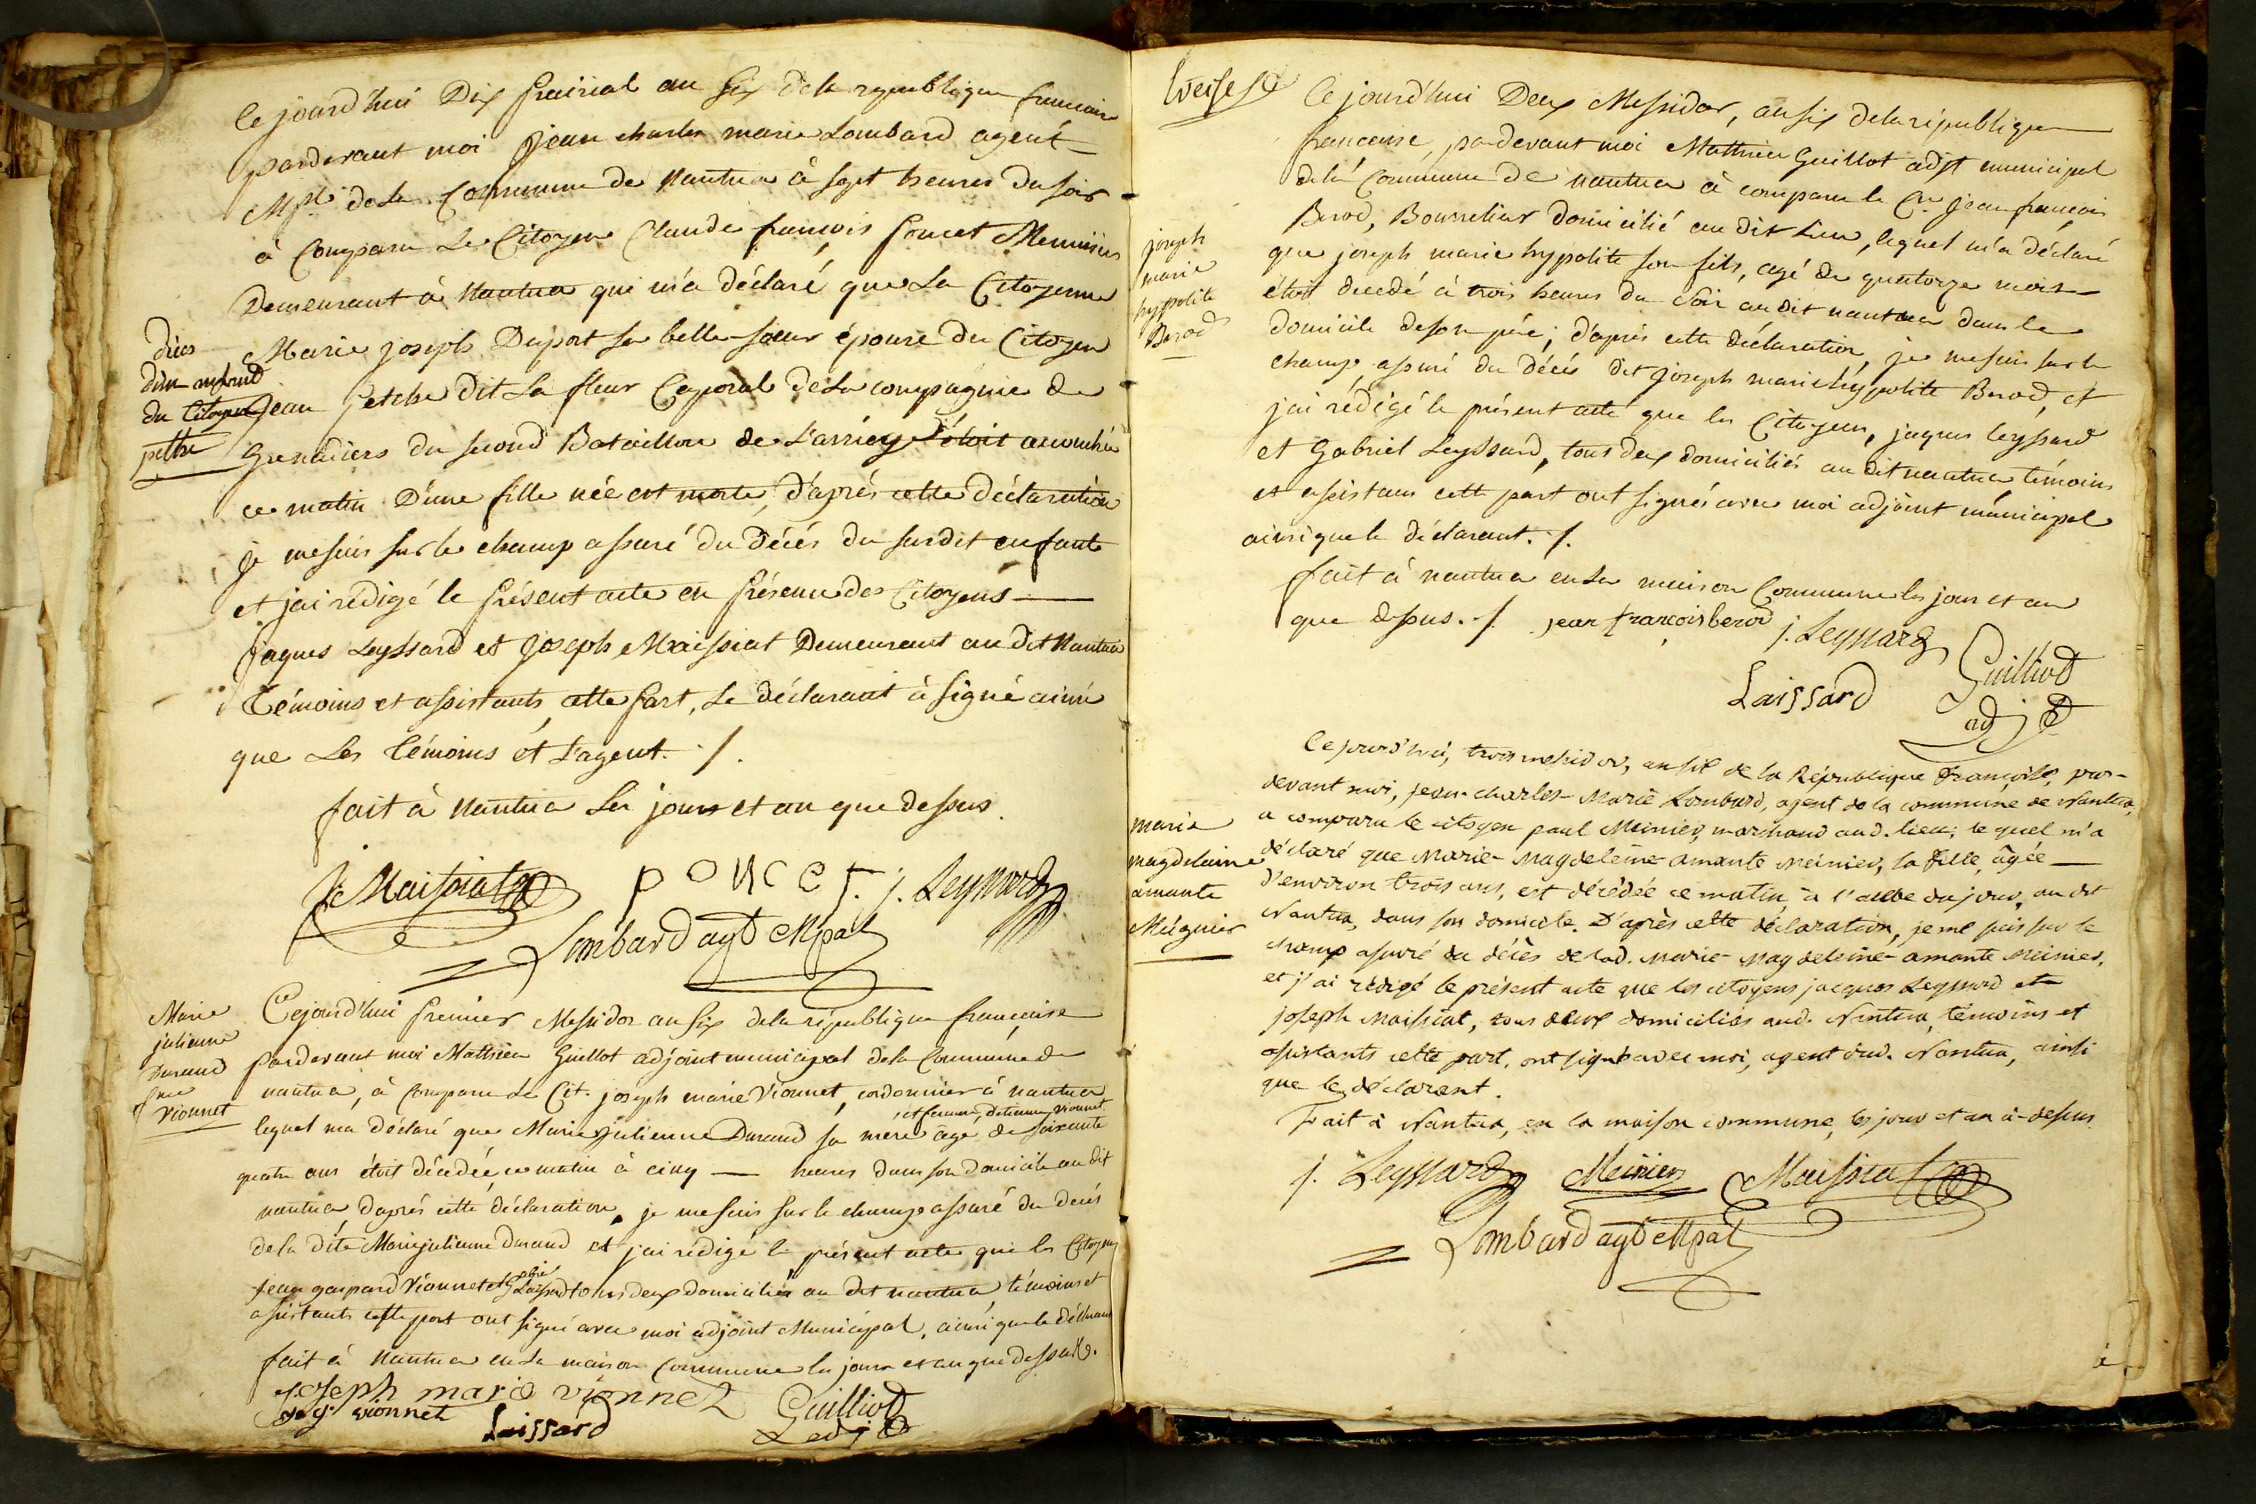 Ce jourd'hui Dix prairial an six de la republique francaise
pardevant moi jean charles marie Lombard agent
Mpal de la Commune de Nantua à sept heures du soir
à Comparu Le Citoyen Claude françois poncet Menuisier
Demeurant à Nantua qui m'a déclaré que La Citoyenne
Marie joseph Duport sa belle-sœur épouse du Citoyen
décès
d'un enfant
du Citoyen
pethe
jean petche dit La fleur Caporal de La compagnie de
Grenadiers du second Bataillon de étoit accouchée
ce matin D'une fille née et morte, d'après cette déclaration
je me suis sur le champ assuré du décès du susdit enfant
et j'ai rédigé le présent acte en présence des Citoyens
jaques Leyssard et joseph Maissiat Demeurant au dit Nantua
Témoins et assistants cette part, Le déclarant à signé ainsi
que Les témoins et L'agent ./.
fait à Nantua Les jours et an que dessus.
Je Maissiat poncet j. Leyssard
Lombard agt Mpal
Marie
julienne
Durand
fme
Vionnet
Cejourd'hui premier Messidor an six de la république française
pardevant moi Mathieu Guillot adjoint municipal de la Commune de
nantua, à comparu Le Cit. joseph marie Vionnet, cordonnier à nantua
et femme d'etienne vionnet
lequel ma déclaré que Marie julienne Durand sa mère âgé de soixante
quatre ans étoit décédée ce matin à cinq — heures dans son domicile au dit
nantua d'après cette déclaration, je me suis sur le champ assuré du decès
de la dite Marie julienne Durand et j'ai rédigé le présent acte que les Citoyens
jean gaspard Vionnet et Laissard tous deux domiciliés au dit nantua témoins et
assistants cette part ont signé avec moi adjoint Municipal, ainsi que le déclarant
fait à Nantua en La maison Commune les jours et an que dessus.
joseph marie vionnet
j. g. vionnet Laissard Guilliot
adjt
Ce jourd'hui Deux Messidor, an six de la république
francaise, pardevant moi Mathieu Guillot adjt municipal
de la Commune de nantua à comparu le Cen jean françois
Berod, Bourrelier domicilié au dit Lieu, lequel m'a déclaré
joseph
marie
hypolite
Berod
que joseph marie hypolite son fils, agé de quatorze mois
étoit decedé à trois heures du soir au dit nantua dans le
domicile de son père; d'après cette déclaration, je me suis sur le
champ assuré du décès dit joseph marie hypolite Berod, et
j'ai rédigé le présent acte que les Citoyens, jaques leyssard
et Gabriel Leyssard, tous deux domiciliés au dit nantua témoins
et assistans cette part ont signés avec moi adjoint municipal
ainsi que le déclarant ./.
fait à nantua en La maison Commune les jour et an
que dessus ./. jean françois berod j. Leyssard
Laissard Guilliot
adjt
Ce jourd'hui, trois messidor, an six de la République françoise, par-
devant moi, jean-charles-Marie Lombard, agent de la commune de Nantua,
a comparu le citoyen paul Meinier, marchand aud. lieu; lequel m'a
maria
magdelaine
amante
Meignier
déclaré que Marie-Magdeleine-amante Meinier, sa fille, âgée
d'environ trois ans, est décédée ce matin, à l'aube du jour, au dit
Nantua, dans son domicile. D'après cette déclaration, je me suis sur le
champ assuré du décès de lad. Marie-Magdeleine-amante Meinier,
et j'ai rédigé le présent acte que les citoyens jacques Leyssard et
joseph Maissiat, tous deux domiciliés aud. Nantua, témoins et
assistants cette part, ont signé avec moi, agent dud. Nantua, ainsi
que le déclarant.
Fait à Nantua, en la maison commune, les jour et an ci-dessus
j. Leyssard Meinier Maissiat
Lombard agt Mpal